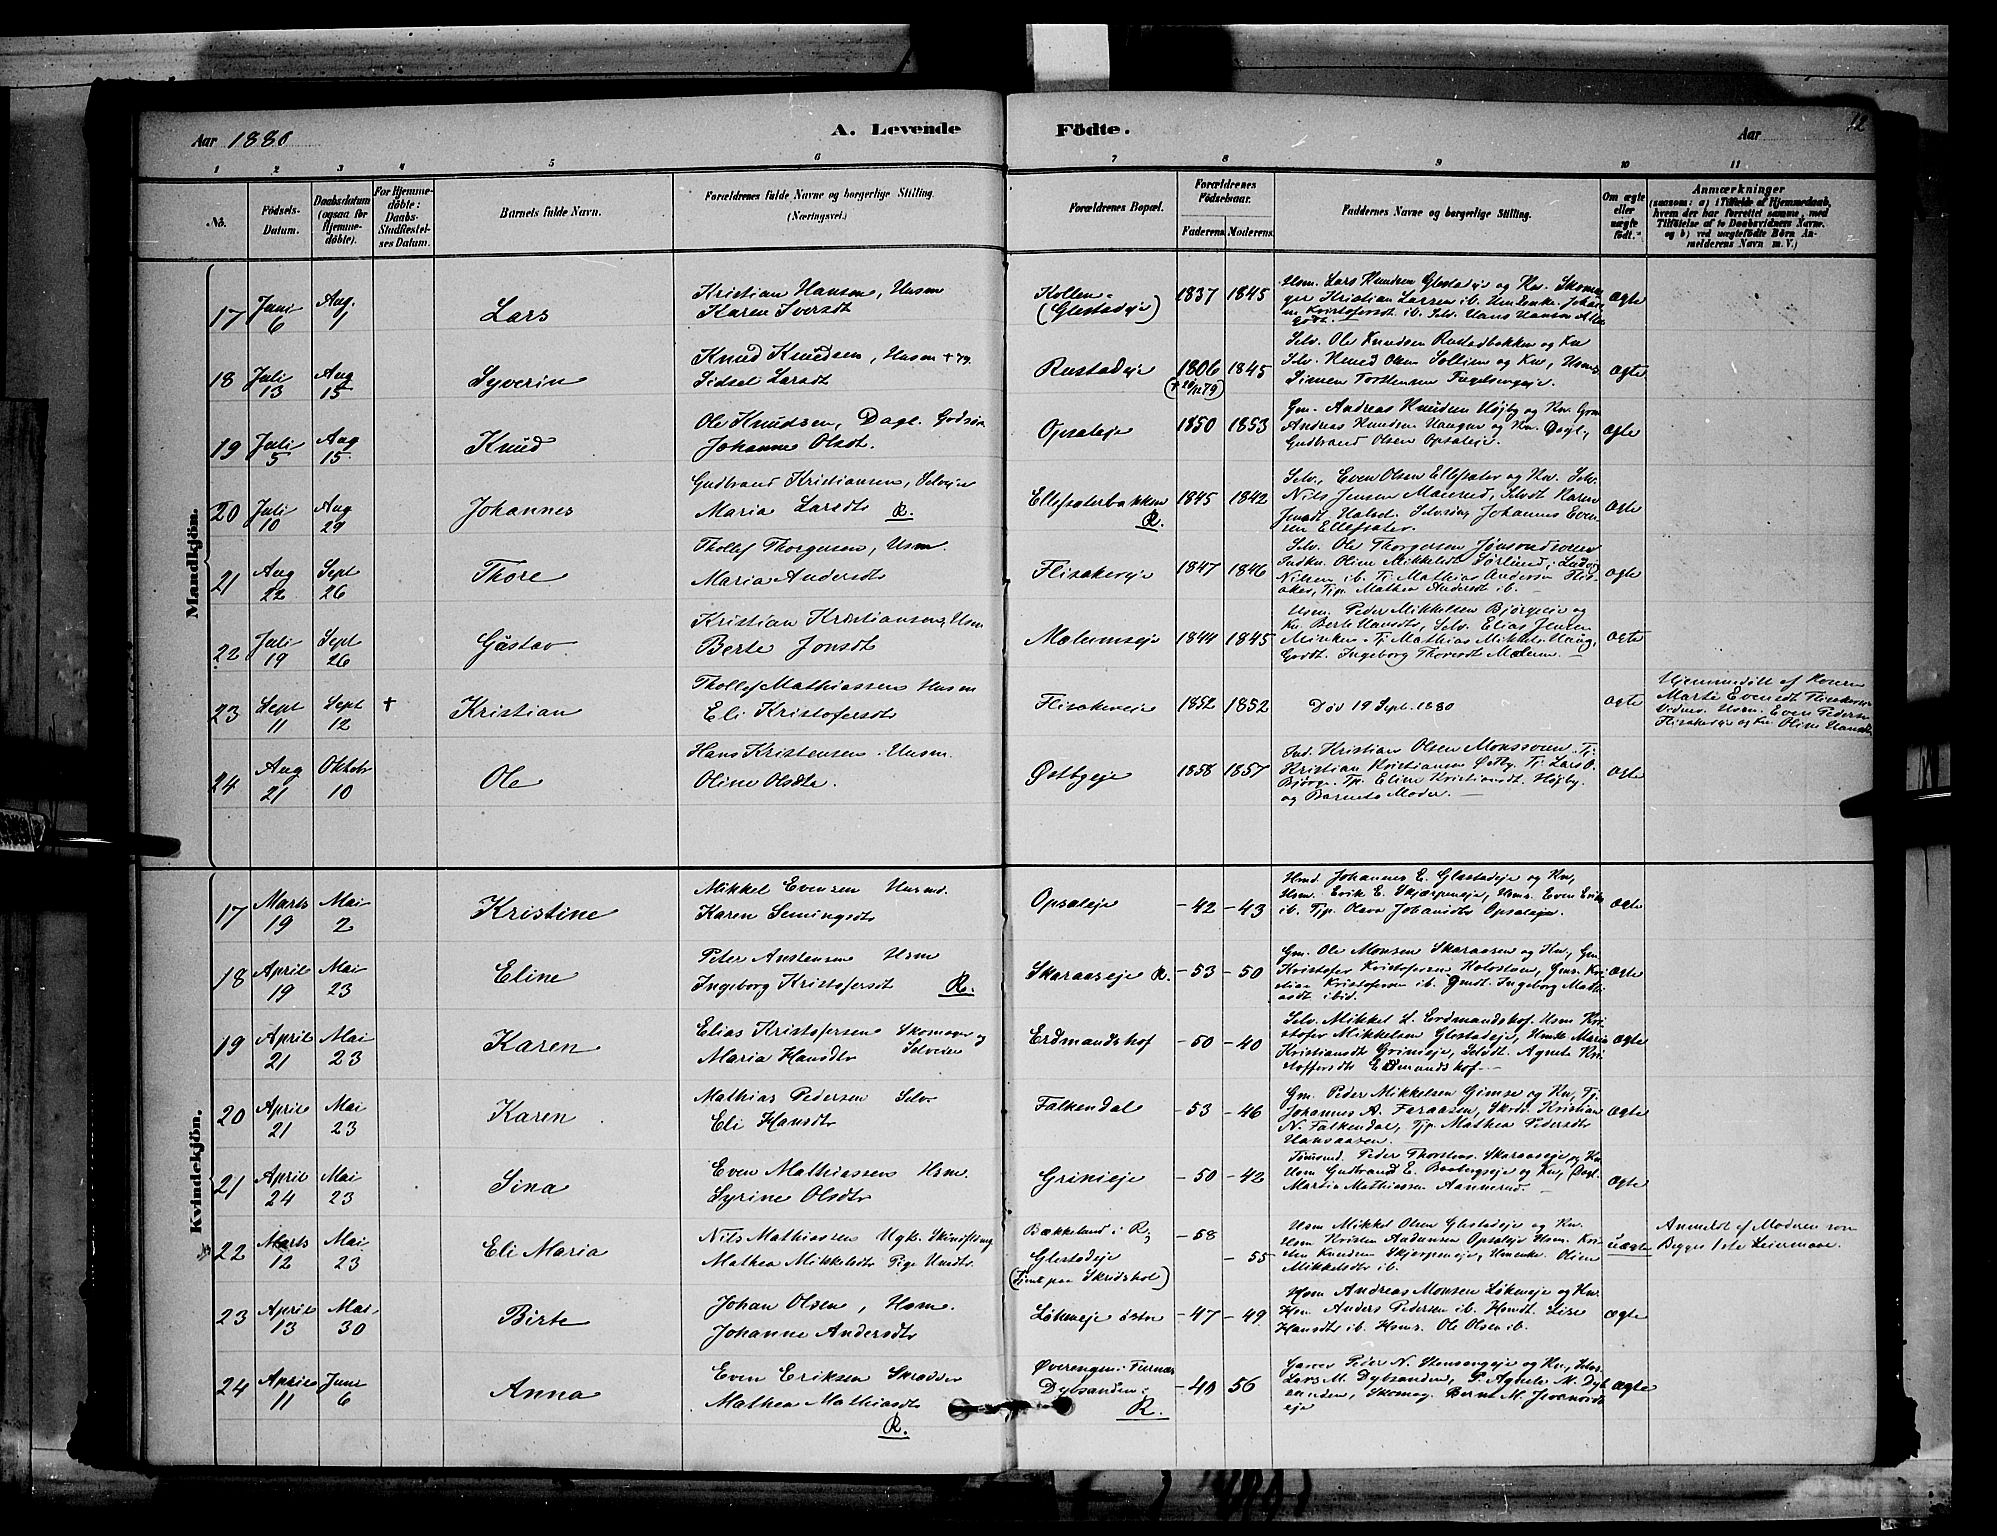 Aar 1880
A. Levende
Födte.
Aar
12
1 2 3 4 5 6 7 8 9 10 11
No.
Födsels-
Datum.
Daabsdatum
(ogsaa for
Hjemme-
döbte).
For Hjemme-
döbte:
Daabs-
Stadfæstel-
ses Datum.
Barnets fulde Navn.
Forældrenes fulde Navne og borgerlige Stilling.
(Næringsvei.)
Forældrenes Bopæl.
Forældrenes
Födselsaar.
Faderens Moderens
Faddernes Navne og borgerlige Stilling.
Om ægte
eller
uægte
født.
Anmærkninger
(saasom: a) i Tilfælde af Hjemmedaab,
hvem der har forrettet samme, med
Tilföielse af to Daabsvidners Navne,
og b) ved uægtefödte Börn An-
melderens Navn m. V.)
Mandkjön.
17 Juni 6 Aug 1 Lars
Kristian Hansen, Husm
Karen Iversdt
Kollen
(Glestadeje)
1837 1845
Husm. Lars Knudsen Glestadeje og Kn. Skoma
ger Kristian Larsen ib.
Kristofersdt ib. Selv. Hans Hansen
ægte
18 Juli 13 Aug 15 Syverin
Knud Knudsen, Husm + 79
Sidsel Larsdt
Rustadeje
1806 1845
Selv. Ole Knudsen Rustadbakken og Kn
Selv. Knud Olsen Sollien og Kn, Husm
Simen Torstensen Fuglsengeje.
ægte
19 Juli 5 Aug 15 Knud
Ole Knudsen, Dagl.
Johanne Olsdt.
Opsaleje
1850 1853
Gm. Andreas Knudsen Højby og Kn. Grm
Andreas Knudsen Haugen og Kn. Dagl.,
Gudbrand Olsen Opsaleje.
ægte
20 Juli 10 Aug 29 Johannes
Gudbrand Kristiansen, Selvejer
Maria Larsdtr R.
Ellefsæterbakken
R.
1845 1842
Selv., Even Olsen Ellefsæter og Kn. Selv.
Nils Jensen Maurud, Selvdt Karen
Jensdt Halset. Selvsøn Johannes Even
sen Ellefsæter.
ægte
21 Aug 22 Sept 26 Thore
Thollef Thorgersen, Husm.
Maria Andersdtr
Flisakereje
1847 1846
Selv. Ole Thorgersen Jønsondvolden
Indkn. Oline Mikkelsdt Sørlund, Ludvig
Nilsen ib. Tj Mathias Andersen Flis-
aker, Tjp. Mathea Andersdt ib.
ægte
22 Juli 19 Sept 26 Gustav
Kristian Kristiansen, Husm
Berte Jonsdt
Mælumseje
1844 1845
Husm. Peder Mikkelsen Bjørgeeje og
Kn. Berte Hansdtr, Selv. Elias Jensen
Tj Mathias Mikkels. Haug,
Gaardt. Ingeborg Thoresdt Mælum.
ægte
23 Sept 11 Sept 12 + Kristian
Thollef Mathiassen Husm
Eli Kristofersdtr
Flisakereje
1852 1852
Død 19 Sept. 1880
ægte
Hjemmedøbt af Konen
Marte Evensdt Flisakereje
Vidner: Husm. Even Pedersen
Flisakereje og Kn. Oline Hansdt
24 Aug 21 Oktob 10 Ole
Hans Kristensen Husm.
Oline Olsdtr.
Østbyeje
1858 1857
Ind. Kristian Olsen Monssveen. Tj.
Kristian Kristiansen Østby. Tj. Lars O.
Bjørge. Tp. Eline Kristiansdt. Højby.
og Barnets Moder.
ægte
Kvindekjön.
17 Marts 19 Mai 2 Kristine
Mikkel Evensen Husmd.
Karen Semingsdtr
Opsaleje
-42 -43
Hmd. Johannes E. Glestadeje og Kn,
Husm. Erik E. Skjærpeneje, Husms Even Eriks
ib. Tjp. Olava Johansdtr Opsaleje.
ægte
18 April 19 Mai 23 Eline
Peter Anstensen Husm
Ingeborg Kristofersdt R.
Skaraaseje R.
-53 -50
Gm. Ole Monsen Skaraasen og Kn, Gm
Kristofer Kristofersen Holostøen, Gms. Kri
stian Kristofersen ib. Gmdt. Ingeborg Mathi
asdt ibid.
ægte
19 April 21 Mai 23 Karen
Elias Kristofersen Skomager og
Maria Hansdtr Selveier
Erdmandshof
-50 -40
Selv. Mikkel L. Erdmandshof. Husm Kri
stofer Mikkelsen Glestadeje, Hmk Maria
Kristiansdt Grinieje, Selvdt. Agnete Kri
stoffersdtr Erdmandshof.
ægte
20 April 21 Mai 23 Karen
Mathias Pedersen Selv
Eli Hansdtr
Falkendal
-53 -46
Gm. Peder Mikkelsen Gimse og Kn, Tj.
Johannes A. Faraasen, Skrd. Kristian
N. Falkendal, Tjp. Mathea Pedersdtr
Hansaasen.
ægte
21 April 24 Mai 23 Sina
Even Mathiassen Husm.
Syrine Olsdtr
Grinieje
-50 -42
Tømmd. Peder Thorstens. Skaraaseje og Kn
Husm Gudbrand E. Baabergseje og Kn, Dagl.
Martin Mathiassen Aannerud.
ægte
22 Marts 12 Mai 23 Eli Maria
Nils Mathiassen Ugk.
Mathea Mikkelsdtr Pige
Bækkelund i R;
Glestadeje
-58
-55
Husm Mikkel Olsen Glestadeje og Kn.
Husm Kristen Andersen Opsaleje Husm. Kri
sten Knudsen Skjerpeneje, Oline
Mikkelsdtr ib.
uægte
Anmeldt af Moderen som
Begges 1ste Leiermaal.
23 April 13 Mai 30 Birte
Johan Olsen, Husm.
Johanne Andersdtr
Løkeneje østre
-47 -49
Husm Andreas Monsen Løkeneje og Kn.
Hm. Anders Pedersen ib. Hmdt. Lise
Hansdtr ib. Hsms. Ole Olsen ib.
ægte
24 April 11 Juni 6 Anna
Even Eriksen Skrædder
Mathea Mathiasdtr
R.
Øverengen i Furnæs
Dybsanden i
R.
-40 56
Garver Peder N. Stensengeje og Kn, Selv.
Lars M. Dybsanden, P. Agnete M. Dyb
sanden, Skomag. Bernt M.
eje
ægte